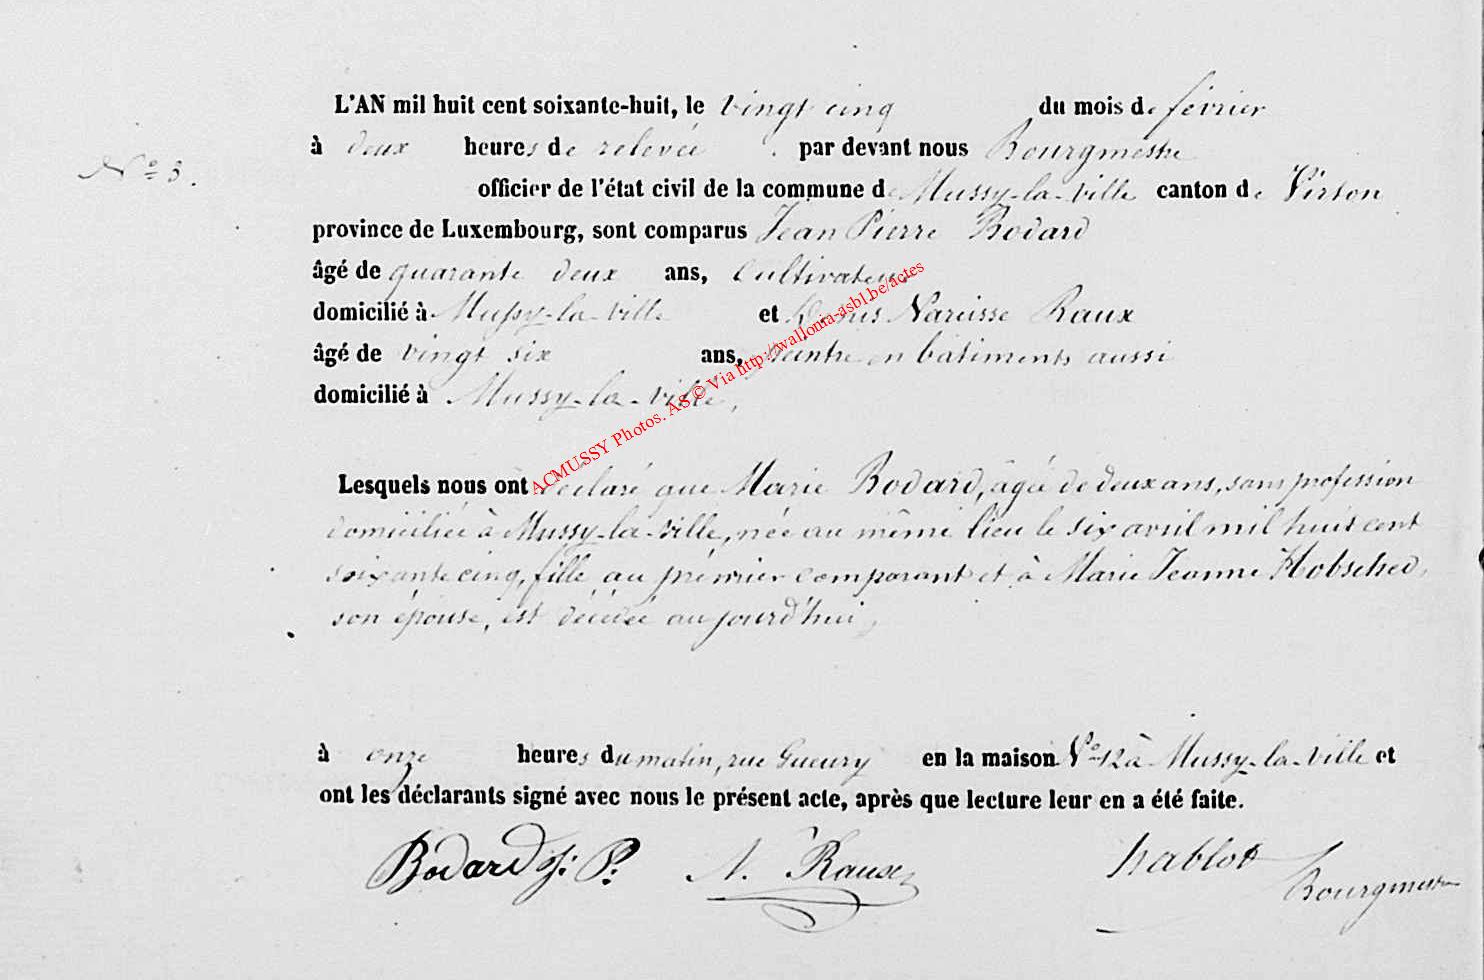 L'AN mil huit cent soixante-huit, le vingt cinq du mois de février
à deux heures de relevée par devant nous Bourgmestre
N° 3.
officier de l'état civil de la commune de Mussy-la-Ville canton de Virton
province de Luxembourg, sont comparus Jean Pierre Bodard
âgé de quarante deux ans, Cultivateur
domicilié à Mussy-la-Ville et Narcisse Raux
âgé de vingt six ans, peintre en bâtiments aussi
domicilié à Mussy-la-Ville,
ACMUSSY Photos. AS © Via http://wallonia-asbl.be/actes
Lesquels nous ont déclaré que Marie Bodard, âgée de deux ans, sans profession
domiciliée à Mussy-la-Ville, née au même lieu le six avril mil huit cent
soixante cinq, fille au premier comparant et à Marie Jeanne Hobsched,
son épouse, est décédée aujourd'hui,
à onze heures du matin, rue Gueury en la maison N° 12 à Mussy-la-Ville et
ont les déclarants signé avec nous le présent acte, après que lecture leur en a été faite.
Bodard J: P: N. Raux Hablot
Bourgmestre